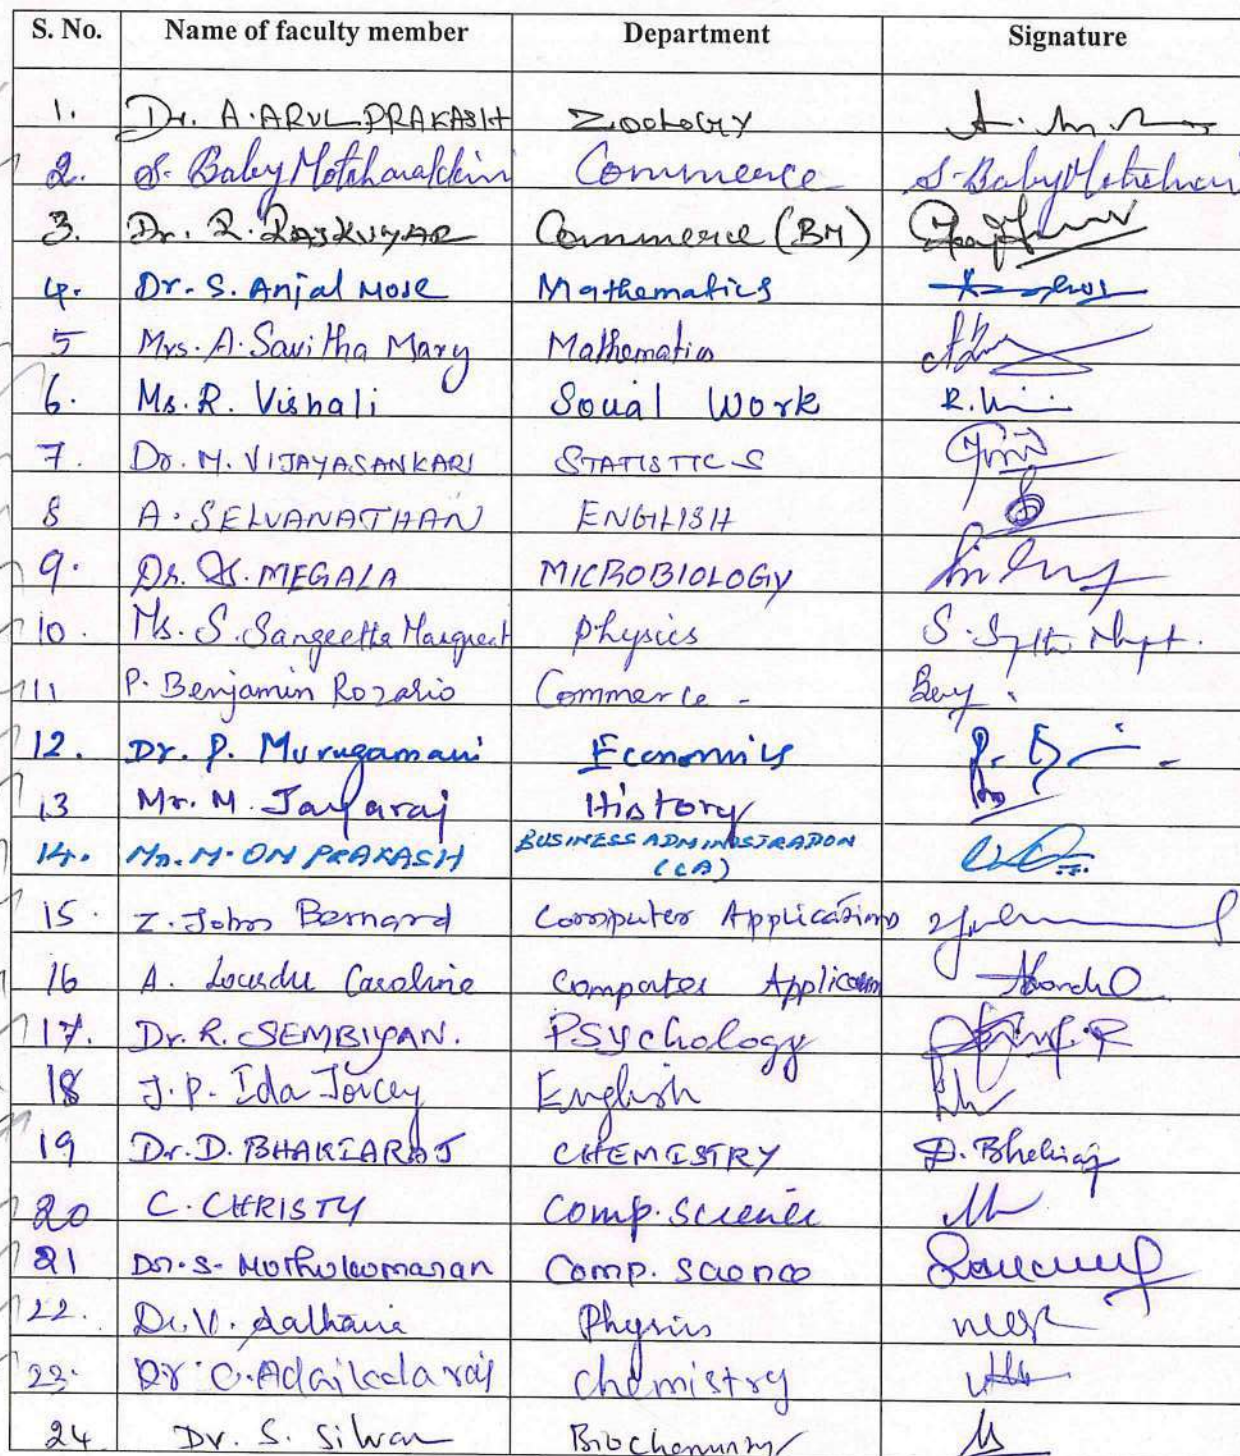 S. No. Name of faculty member Department Signature
1. Dr. A. ARUL PRAKASH ZOOLOGY
2. S. Baby Commerce S. Baby
3. Dr. R. RAJKUMAR Commerce (BM)
4. Dr. S. Anjal Mose Mathematics
5 Mrs. A. Savitha Mary Mathematics
6. Ms. R. Vishali Social Work
7. Dr. M. VIJAYASANKARI STATISTICS
8 A. SELVANATHAN ENGLISH
9. Dr. S. MEGALA MICROBIOLOGY
10. Ms. S. Sangeetha Margreat Physics
11 P. Benjamin Rozario Commerce -
12. Dr. P. Murugamani Economics
13 Mr. M. Jayaraj History
14. Mr. M. OM PRAKASH BUSINESS ADMINISTRATION
(CA)
15. Z. John Bernard Computer Applications
16 A. Lourdu Caroline Computer Application
17. Dr. R. SEMBIYAN. PSychology
18 J. P. Ida Joicey English
19 Dr. D. BHAKIARAJ CHEMISTRY D. Bhakiaraj
20 C. CHRISTY Comp. Science
21 Dr. S. Muthukumaran Comp. Science
22. Dr. V. Physics
23. Dr C. Adaikalaraj Chemistry
24 Dr. S. Silvan Biochemistry